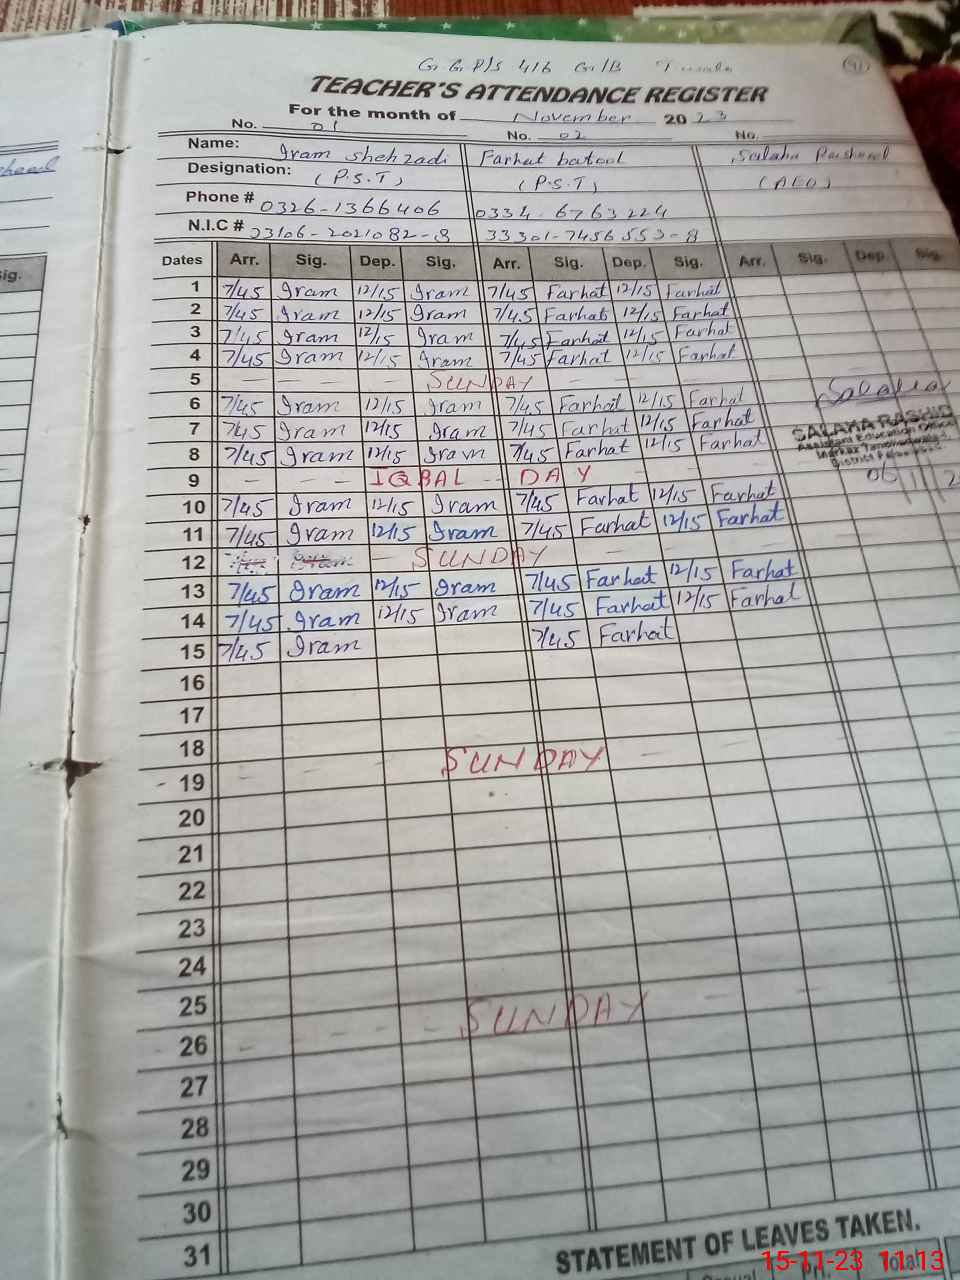 G.G.P/S 416 G/B
TEACHER'S ATTENDANCE REGISTER
For the month of November 2023
No. 01 No. 02 No.
Name: Iram shehzadi Farhat batool Salaha Rasheed
Designation: (P.S.T) (P.S.T) (AEO)
Phone # 0326-1366406 0334-6763224
N.I.C # 23106-2021082-8 33301-7456553-8
sig.
Dates Arr. Sig. Dep. Sig. Arr. Sig. Dep. Sig. Arr. Sig. Dep. Sig.
1 7/45 Iram 12/15 Iram 7/45 Farhat 12/15 Farhat
2 7/45 Iram 12/15 Iram 7/45 Farhat 12/15 Farhat
3 7/45 Iram 12/15 Iram 7/45 Farhat 12/15 Farhat
4 7/45 Iram 12/15 Iram 7/45 Farhat 12/15 Farhat
5 SUNDAY
6 7/45 Iram 12/15 Iram 7/45 Farhat 12/15 Farhat
7 7/45 Iram 12/15 Iram 7/45 Farhat 12/15 Farhat
SALAHA RASHID
Assistant Education Officer
8 7/45 Iram 12/15 Iram 7/45 Farhat 12/15 Farhat
9 IQBAL DAY
06/11/2
10 7/45 Iram 12/15 Iram 7/45 Farhat 12/15 Farhat
11 7/45 Iram 12/15 Iram 7/45 Farhat 12/15 Farhat
12 SUNDAY
13 7/45 Iram 12/15 Iram 7/45 Farhat 12/15 Farhat
14 7/45 Iram 12/15 Iram 7/45 Farhat 12/15 Farhat
15 7/45 Iram 7/45 Farhat
16
17
18
19 SUNDAY
20
21
22
23
24
25
26 SUNDAY
27
28
29
30
31
STATEMENT OF LEAVES TAKEN.
Total
15-11-23 11:13